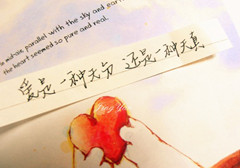 is midair, parallel with the sky and earth
the heart seemed so pure and real.
爱是一种天分 还是一种天真